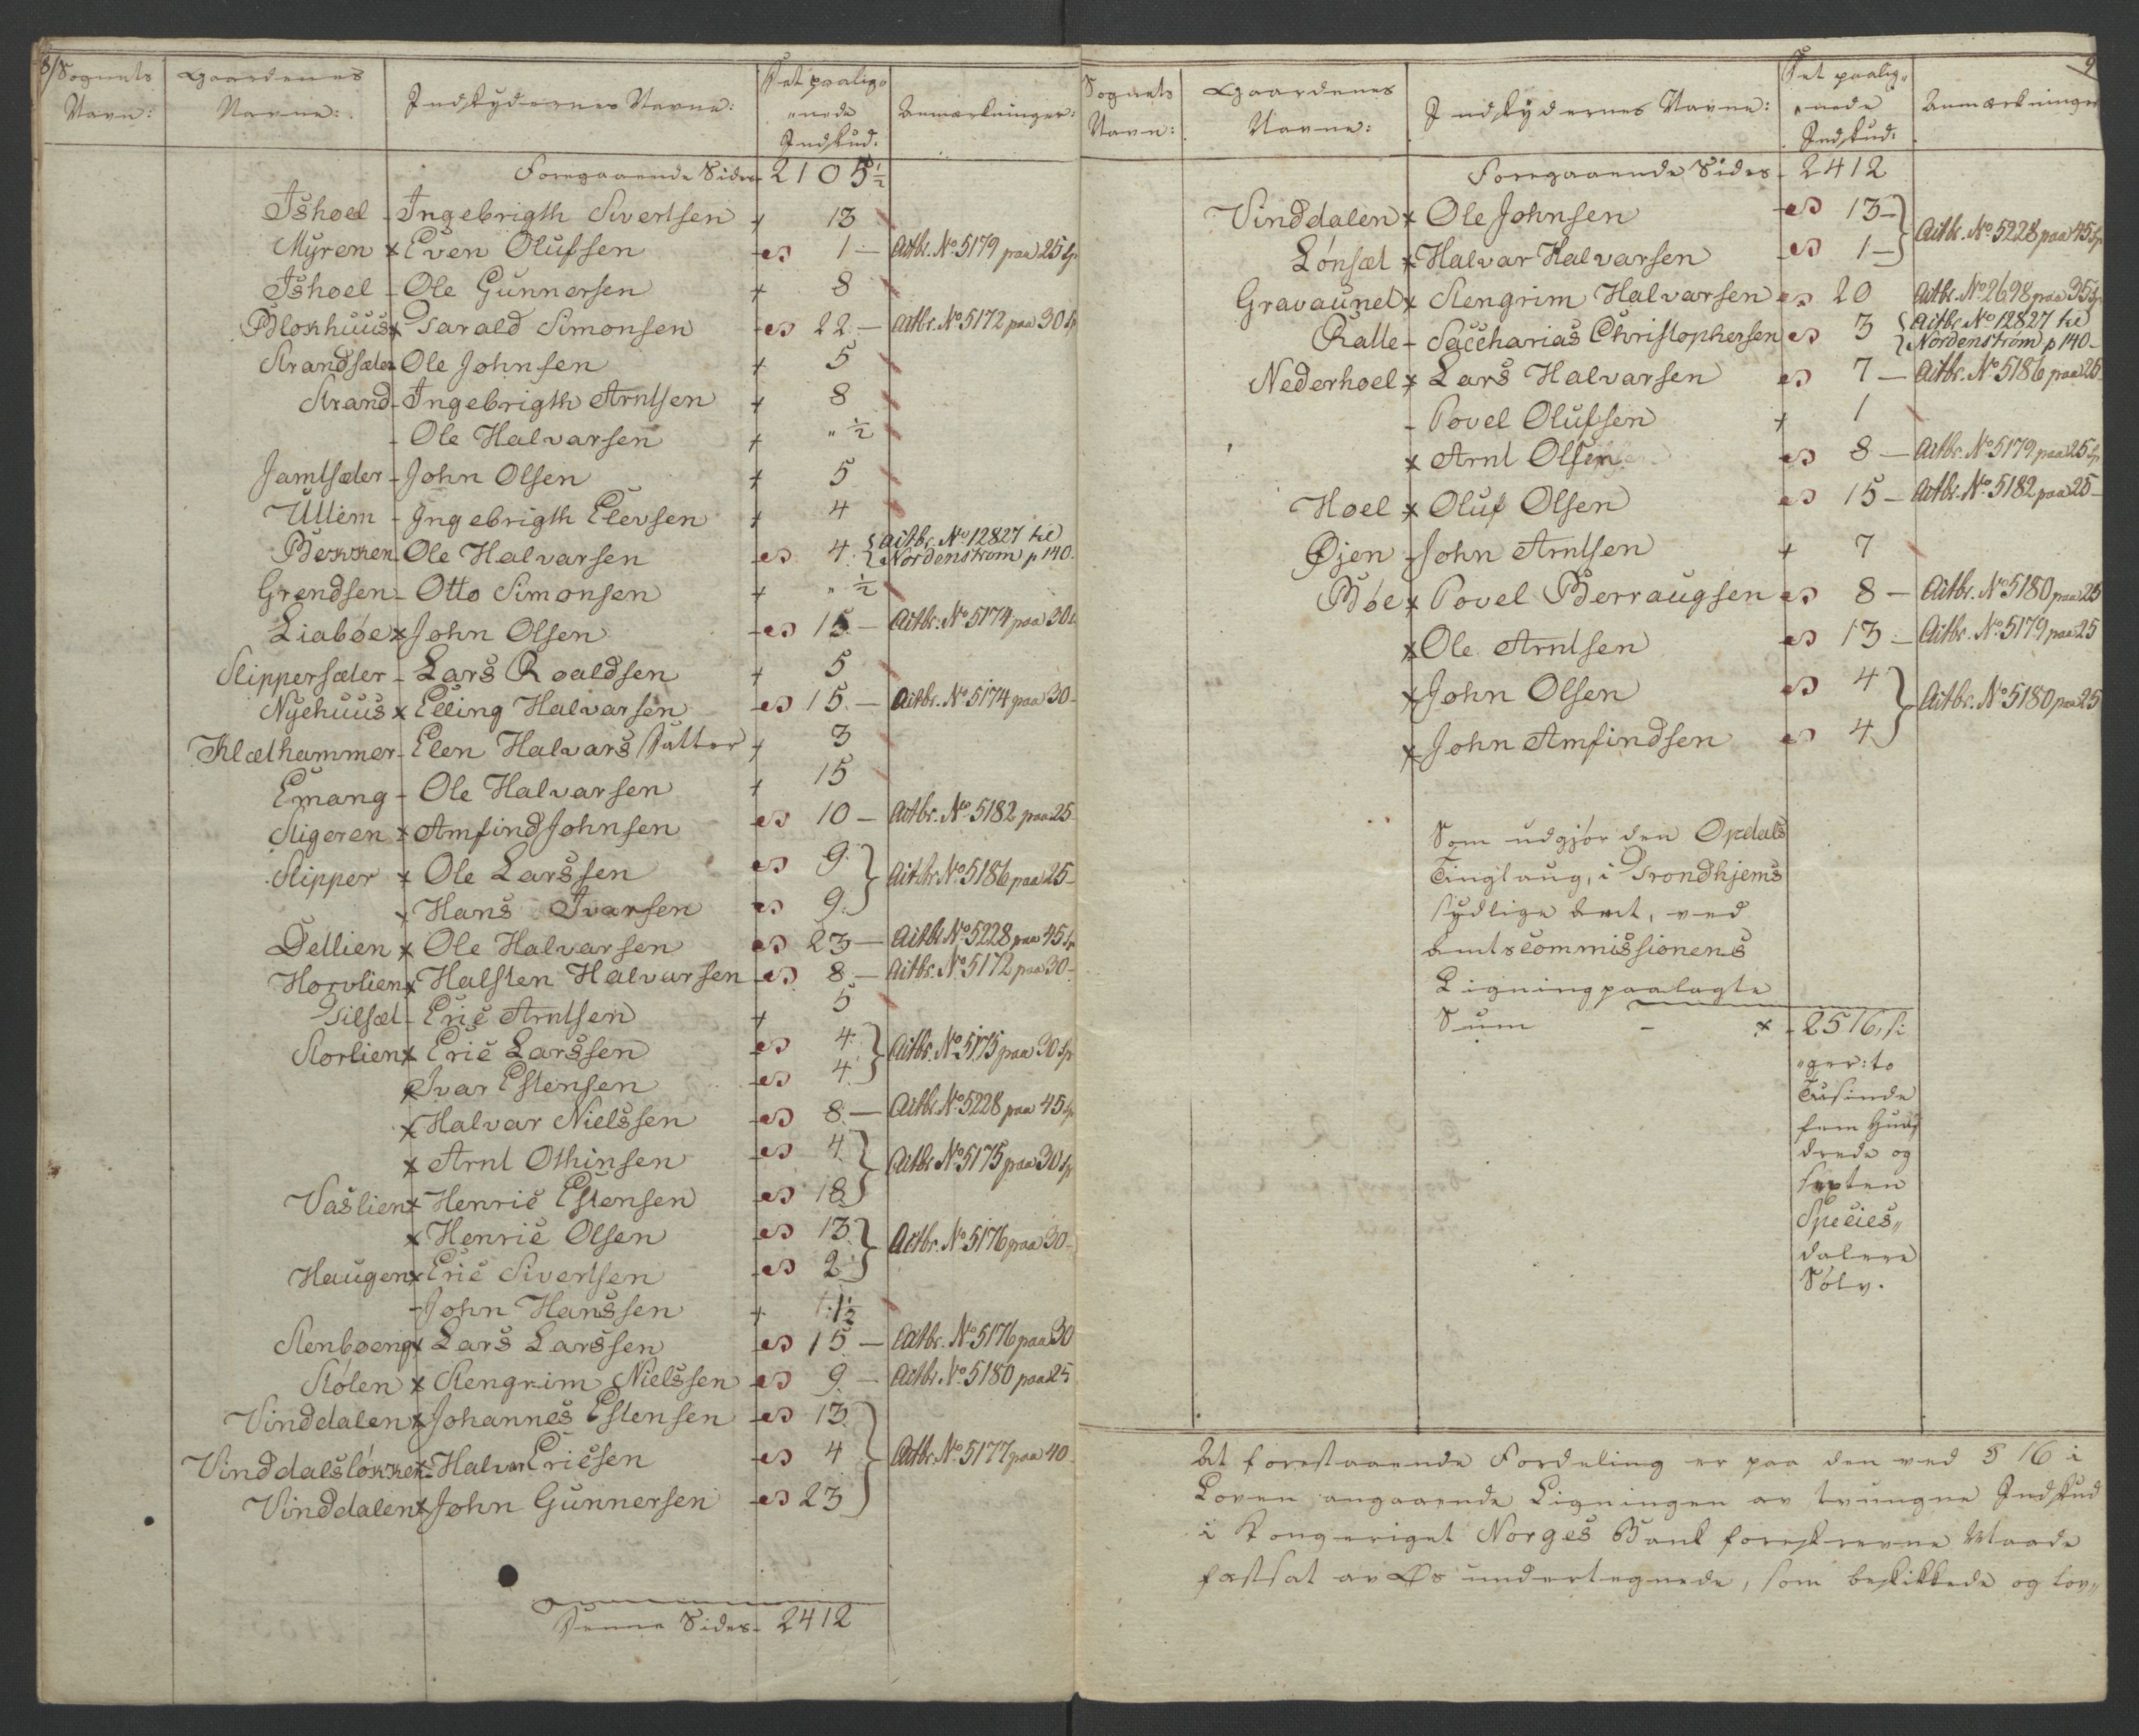 8/ Sognets Navn: Gaardenes Navne: Indskydernes Navne: Det paalig„ „nede Indskud: Anmærkninger:
Foregaaende Sides 2105 1/2
Ishoel - Ingebrigth Sivertsen + 13
Myren x Even Olufsen es 1 - Actbr. No 5179 paa 25 Sp
Ishoel - Ole Gunnersen + 8
Blokhuus x Tarald Simonsen es 22 - Actbr. No 5172 paa 30 Sp
Strandsæter Ole Johnsen + 5
Strand - Ingebrigth Arntsen + 8
- Ole Halvarsen + „ 1/2
Jamtsæter - John Olsen + 5
Ullem - Ingebrigth Elevsen + 4
Bekken Ole Halvarsen es 4. { Actbr. No 12827 til Nordenstrøm p 140.
Grendsen - Otto Simonsen + „ 1/2
Liabøe x John Olsen es 15 - Actbr. No 5174 paa 30
Slippersæter - Lars Roaldsen + 5
Nyehuus x Elling Halvarsen es 15. - Actbr. No 5174 paa 30 -
Klæthammer - Elen Halvars Datter + 3
Emang - Ole Halvarsen + 15
Stigeren x Amfind Johnsen es 10 - Actbr. No 5182 paa 25
Slipper x Ole Larssen es 9 }
x Hans Ivarsen es 9. } Actbr No 5186 paa 25 -
Dellien x Ole Halvarsen es 23 - Actbr No 5228 paa 45 Sp
Horvlien x Halsten Halvarsen es 8 - Actbr. No 5172 paa 30 -
Tilsæt - Eric Arntsen + 5
Storlien x Eric Larssen es 4. }
x Ivar Estensen es 4. } Actbr. No 5175 paa 30 Sp
x Halvar Nielssen es 8. - Actbr No 5228 paa 45 Sp
x Arnt Othinsen es 4. }
Vaslien x Henric Estensen es 18 } Actbr No 5175 paa 30 Sp
x Henric Olsen es 13. }
Haugen x Eric Sivertsen es 2. } Actbr. No 5176 paa 30 -
- John Hanssen + 1 1/2
Stenboeng x Lars Larssen es 15 - Actbr. No 5176 paa 30
Stølen x Stengrim Nielssen es 9. - Actbr. No 5180 paa 25
Vinddalen x Johannes Estensen es 13. }
Vinddalsløkken x Halvar Ericsen es 4 } Actbr. No 5177 paa 40
Vinddalen x John Gunnersen es 23 }
Denne Sides - 2412
9
Sognets Navn: Gaardenes Navne: Indskydernes Navne: Det paalig„ „nede Indskud: Anmærkninger
Foregaaende Sides - 2412
Vinddalen x Ole Johnsen es 13 - }
Lønsæt x Halvar Halvarsen es 1 - } Actbr. No 5228 paa 45 Sp
Gravaunet x Stengrim Halvarsen es 20 Actbr. No 2698 paa 35 Sp
Ralle - Saccharias Christophersen es 3 { Actbr No 12827 til Nordenstrøm p 140 -
Nederhoel x Lars Halvarsen es 7 - Actbr. No 5186 paa 25
- Povel Olufsen + 1
x Arnt Olsen es 8 - Actbr. No 5179 paa 25 Sp
Hoel x Oluf Olsen es 15 - Actbr. No 5182 paa 25 -
Øjen - John Arntsen + 7
Bøe x Povel Berraugsen es 8 - Actbr. No 5180 paa 25
x Ole Arntsen es 13 - Actbr. No 5179 paa 25
x John Olsen es 4 }
x John Amfindsen es 4 } Actbr. No 5180 paa 25
Som udgjør den Opdals
Tinglaug, i Trondhjems
sydlige Amt, ved
Amtscommissionens
Ligning paalagte
Sum - x - 2516, s:
„ger: to
Tusinde
fem Hun„
drede og
sexten
Species„
dalere
Sølv.
At forestaaende Fordeling er paa den ved § 16 i
Loven angaaende Ligningen av tvungne Indskud
i Kongeriget Norges Bank foreskrevne Maade
fastsat av Os undertegnede, som beskikkede og lov„